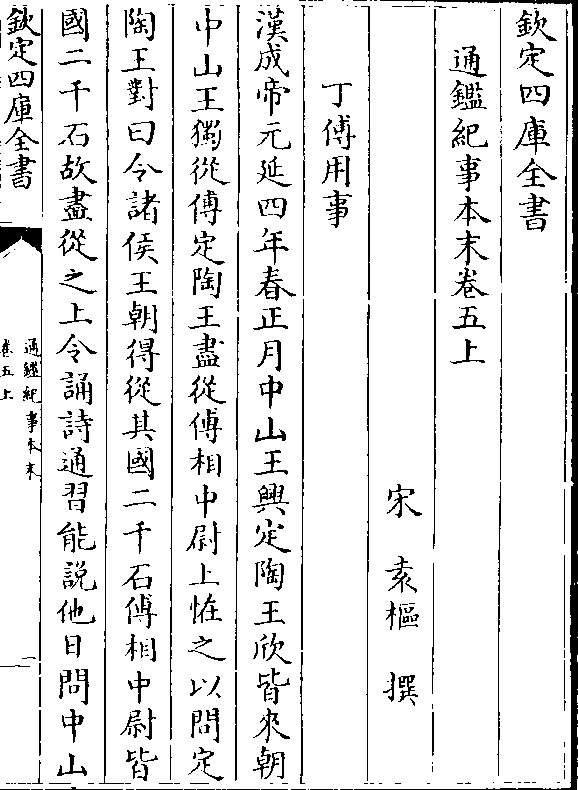 欽定四庫全書
通鑑紀事本末卷五上
宋 袁樞 撰
丁傅用事
漢成帝元延四年春正月中山王興定陶王欣皆來朝
中山王獨從傅定陶王盡從傅相中尉上怪之以問定
陶王對曰令諸侯王朝得從其國二千石傅相中尉皆
國二千石故盡從之上令誦詩通習能說他日問中山
欽定四庫全書
通鑑紀事本末
卷五上
一